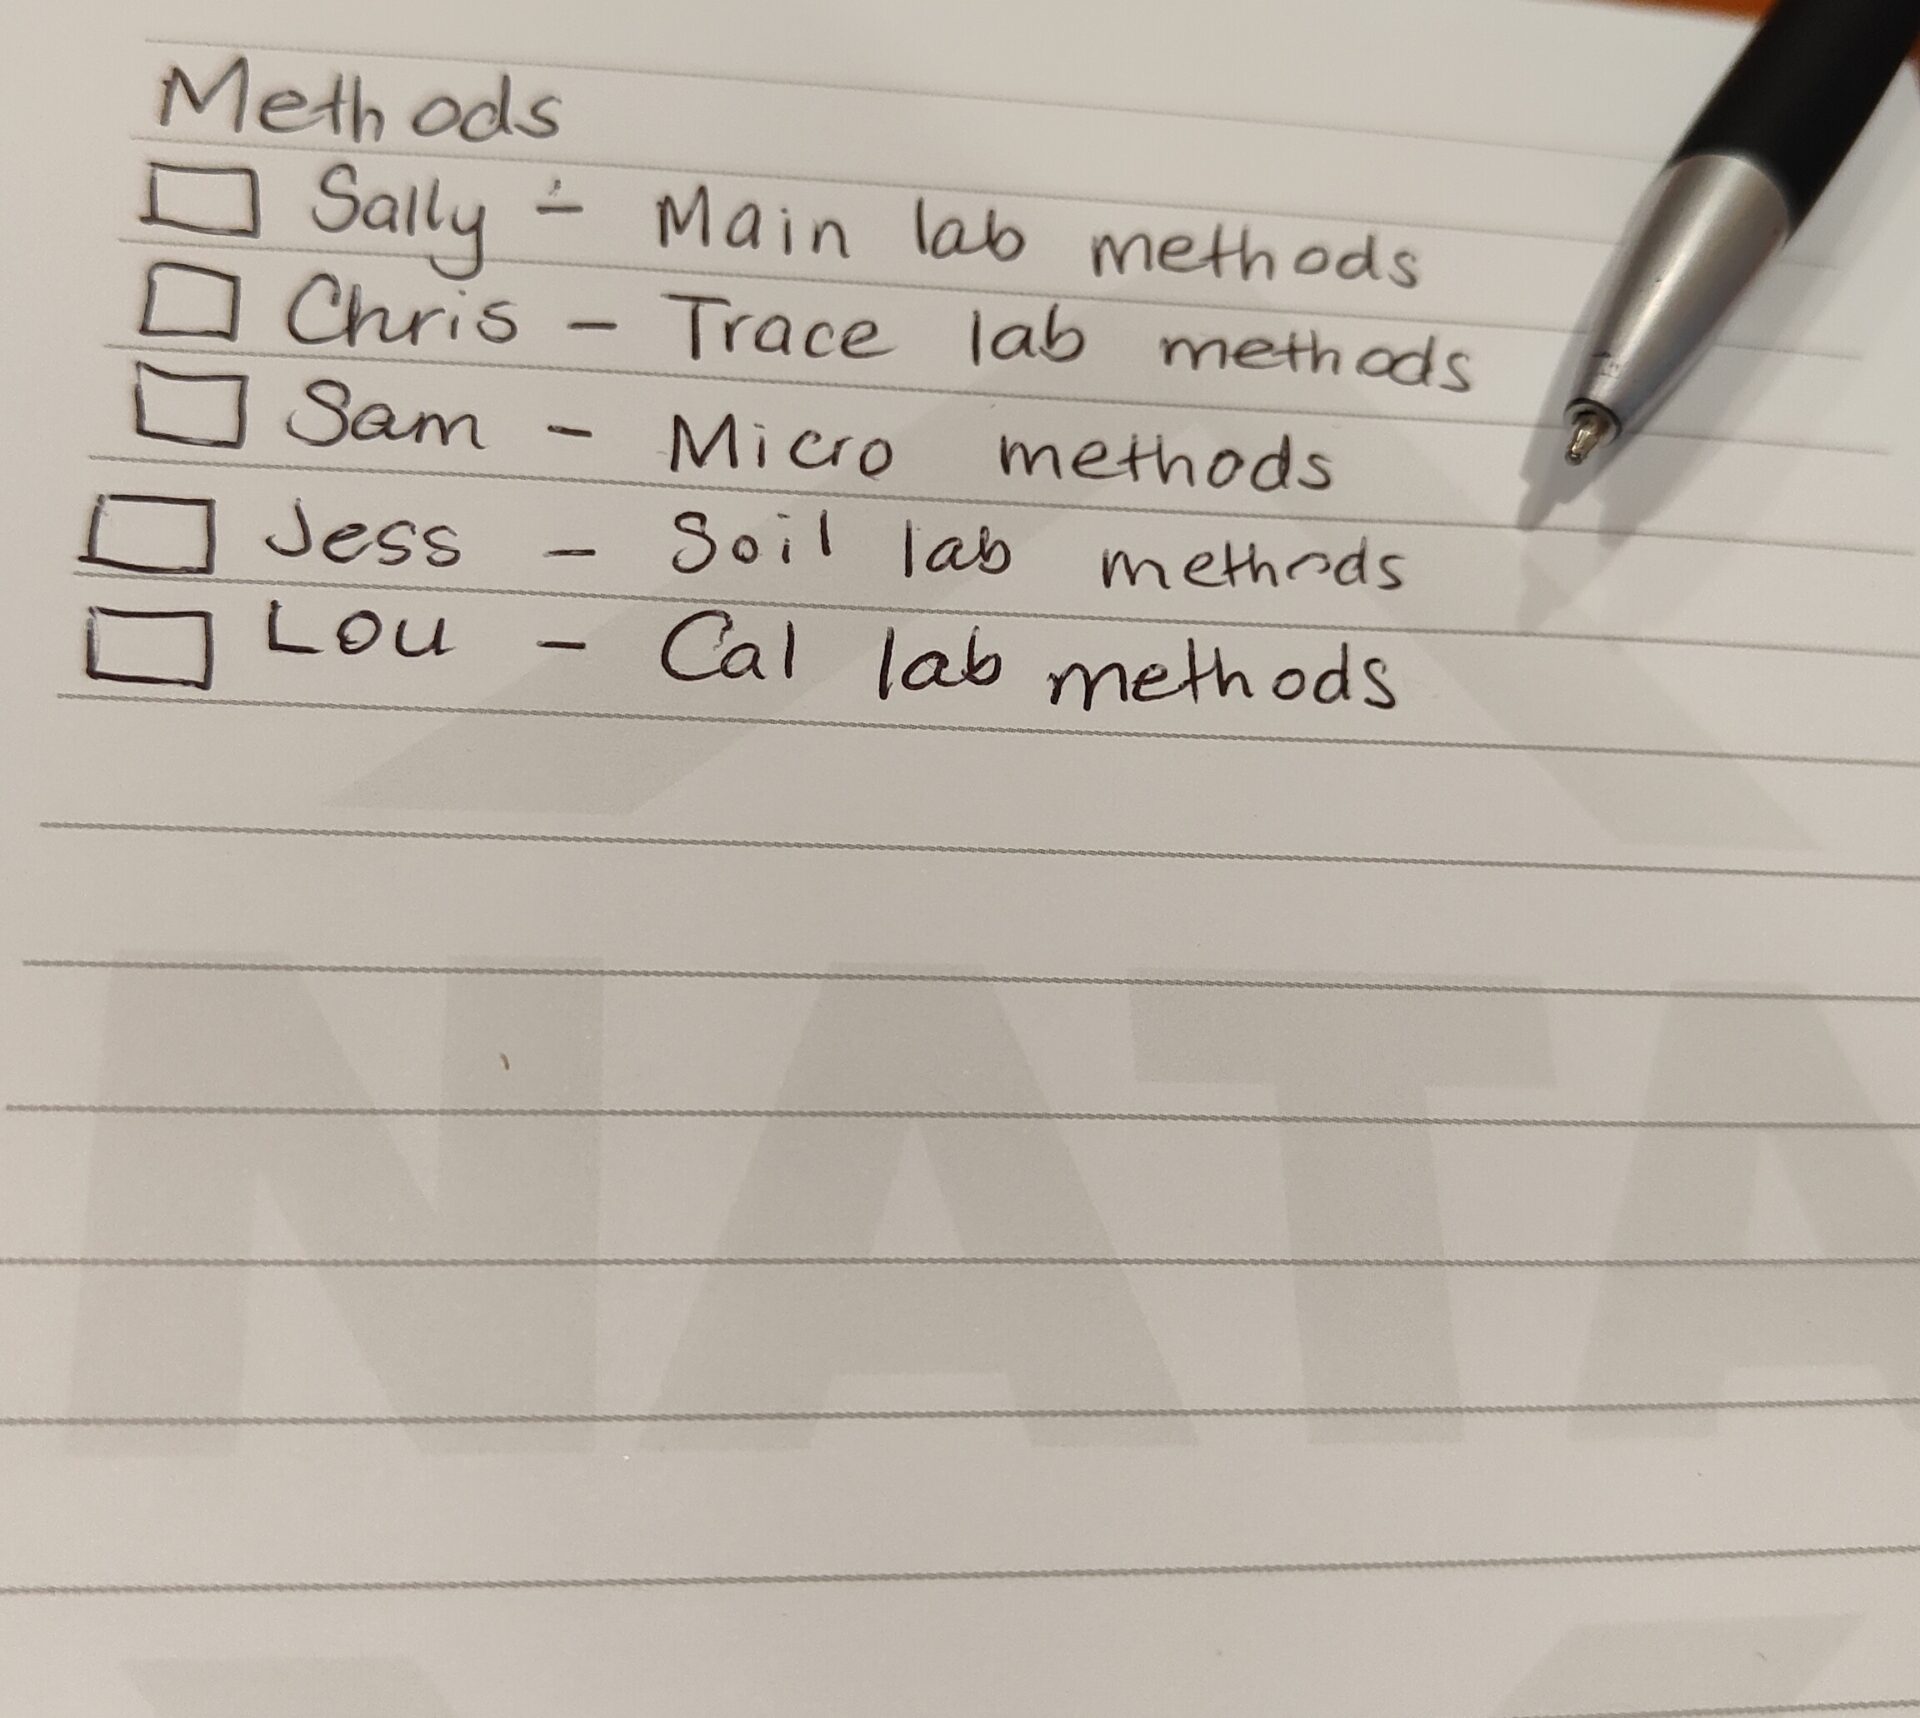 Methods
☐ Sally - Main lab methods
☐ Chris - Trace lab methods
☐ Sam - Micro methods
☐ Jess - Soil lab methods
☐ Lou - Cal lab methods
NATA